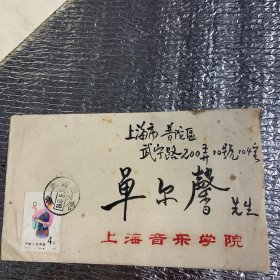 上海市普陀區
武宁路一200弄10號104室
單尔馨 先生
上海音乐学院
中国人民邮政
4分